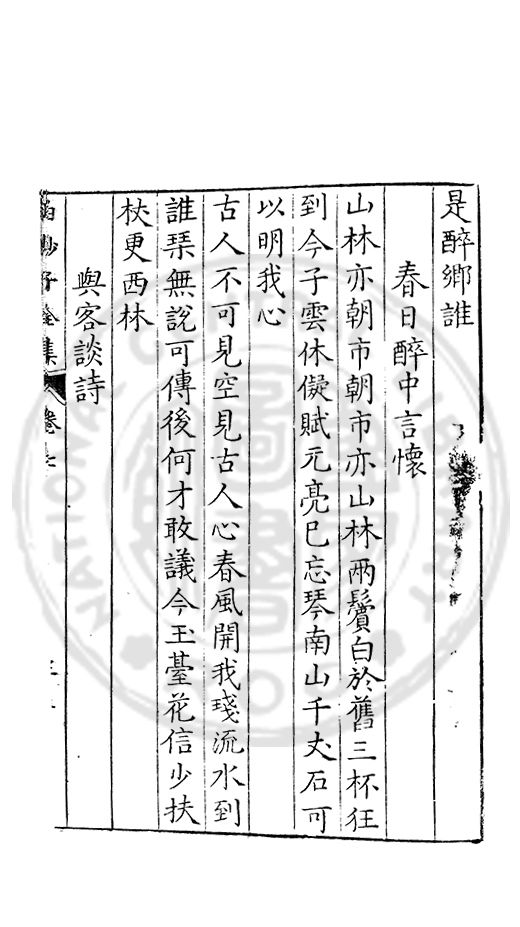 是醉鄉誰
春日醉中言懷
山林亦朝市朝市亦山林兩鬢白於舊三杯狂
到今子雲休儗賦元亮已忘琴南山千丈石可
以明我心
古人不可見空見古人心春風開我琖流水到
誰琹無說可傳後何才敢議今玉臺花信少扶
杖更西林
與客談詩
全集 卷七